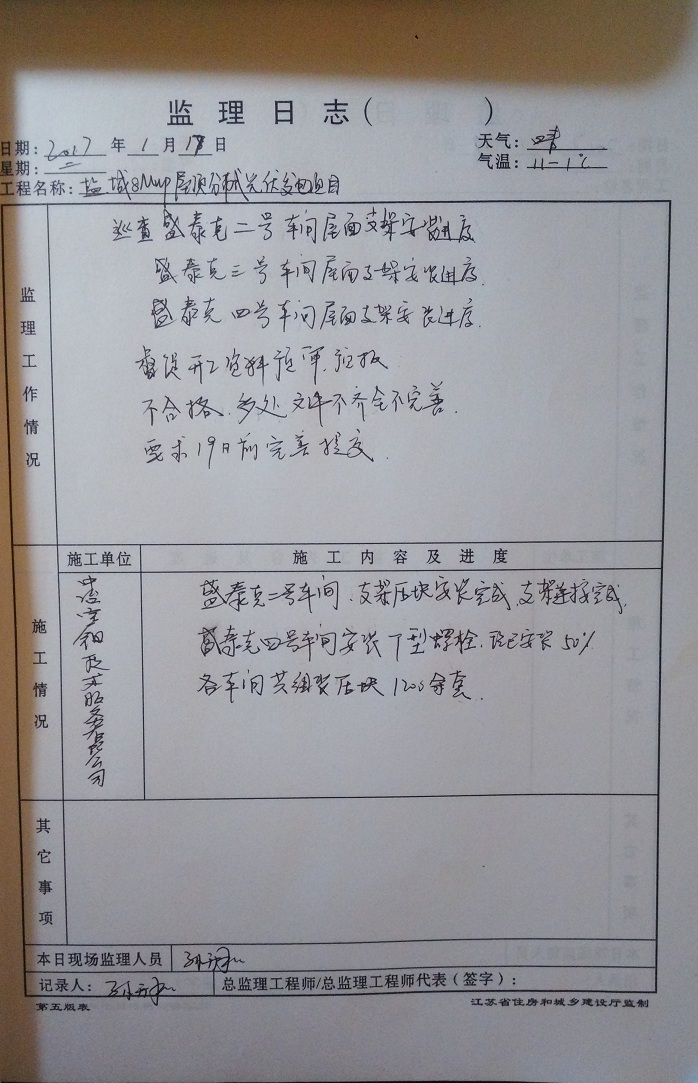 监理日志（ ）
日期：2017 年 1 月 17 日
天气：晴
星期：二
气温：11-1℃
工程名称：盐城8Mwp屋顶分布式光伏发电项目
监理工作情况
巡查盛泰克二号车间屋面支架安装进度
盛泰克三号车间屋面支架安装进度.
盛泰克四号车间屋面支架安装进度.
开工资料
不合格、多处文件不齐全不完善.
要求19日前完善提交.
施工单位
施工内容及进度
施工情况
技术服务有限公司
盛泰克二号车间、支架压块安装完成,支架连接完成.
盛泰克四号车间安装T型螺栓,已安装50%
各车间共组装压块1200余套.
其它事项
本日现场监理人员
记录人：
总监理工程师/总监理工程师代表（签字）：
第五版表
江苏省住房和城乡建设厅监制